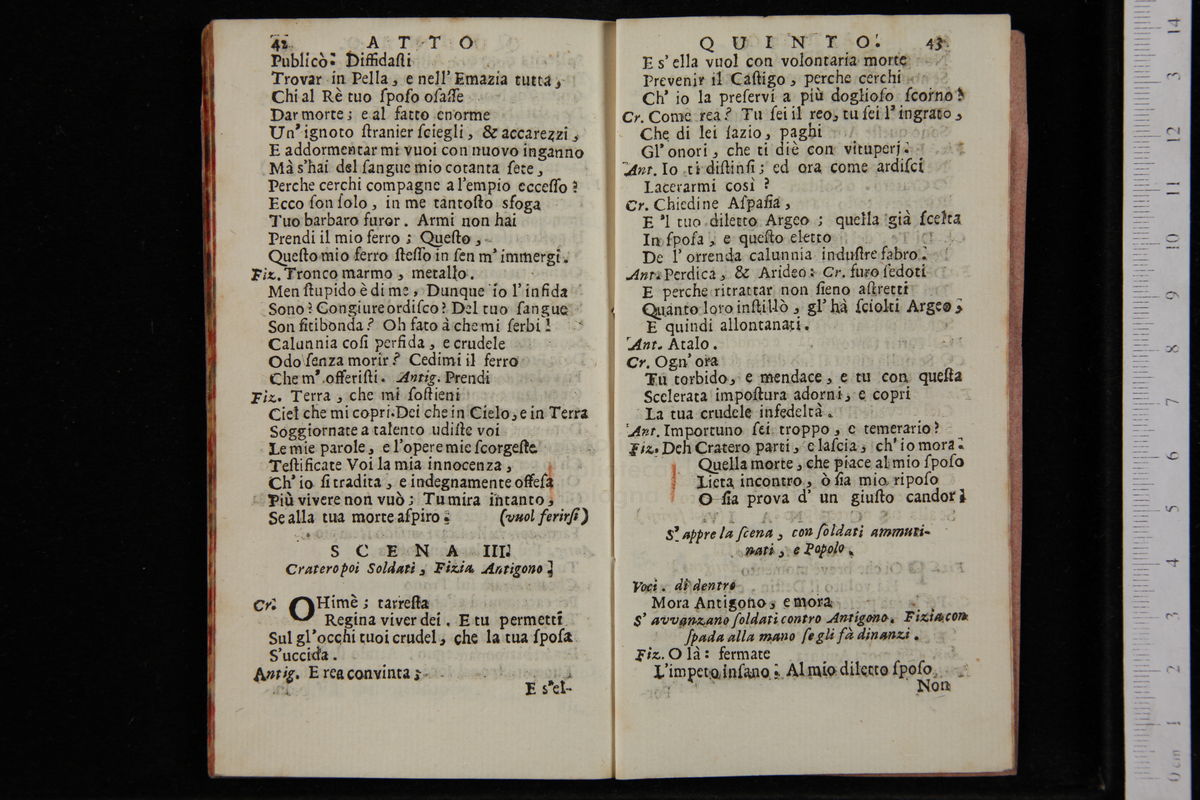 42 ATTO
Publicò: Diffidaſti
Trovar in Pella, e nell' Emazia tutta,
Chi al Rè tuo ſpoſo oſaſſe
Dar morte; e al fatto enorme
Un' ignoto ſtranier ſciegli, & accarezzi,
E addormentar mi vuoi con nuovo inganno
Mà s'hai del ſangue mio cotanta ſete,
Perche cerchi compagne a l'empio ecceſſo?
Ecco ſon ſolo, in me tantoſto sfoga
Tuo barbaro furor. Armi non hai
Prendi il mio ferro; Queſto,
Queſto mio ferro ſteſſo in ſen m' immergi.
Fiz. Tronco marmo, metallo.
Men ſtupido è di me, Dunque io l' infida
Sono? Congiure ordiſco? Del tuo ſangue
Son ſitibonda? Oh fato à che mi ſerbi!
Calunnia coſi perfida, e crudele
Odo ſenza morir? Cedimi il ferro
Che m' offeriſti. Antig. Prendi
Fiz. Terra, che mi ſoſtieni
Ciel che mi copri. Dei che in Cielo, e in Terra
Soggiornate a talento udiſte voi
Le mie parole, e l'opere mie ſcorgeſte
Teſtificate Voi la mia innocenza,
Ch' io ſi tradita, e indegnamente offeſa
Più vivere non vuò; Tu mira intanto,
Se alla tua morte aſpiro. (vuol ferirſi)
SCENA III.
Cratero poi Soldati, Fizia Antigono.
Cr. OHimè; t'arreſta
Regina viver dei. E tu permetti
Sul gl'occhi tuoi crudel, che la tua ſpoſa
S'uccida.
Antig. E rea convinta;
E s'el-
QUINTO. 43
E s' ella vuol con volontaria morte
Prevenir il Caſtigo, perche cerchi
Ch' io la preſervi a più doglioſo ſcorno?
Cr. Come rea? Tu ſei il reo, tu ſei l'ingrato,
Che di lei ſazio, paghi
Gl' onori, che ti diè con vituperj.
Ant. Io ti diſtinſi; ed ora come ardiſci
Lacerarmi così?
Cr. Chiedine Aſpaſia,
E 'l tuo diletto Argeo; quella già ſcelta
In ſpoſa, e queſto eletto
De l' orrenda calunnia induſtre fabro.
Ant. Perdica, & Arideo: Cr. furo ſedoti
E perche ritrattar non ſieno aſtretti
Quanto loro inſtillò, gl' hà ſciolti Argeo,
E quindi allontanati.
Ant. Atalo.
Cr. Ogn' ora
Tu torbido, e mendace, e tu con queſta
Scelerata impoſtura adorni, e copri
La tua crudele infedeltà.
Ant. Importuno ſei troppo, e temerario?
Fiz. Deh Cratero parti, e laſcia, ch' io mora.
Quella morte, che piace al mio ſpoſo
Lieta incontro, ò ſia mio ripoſo
O ſia prova d' un giuſto candor.
S' appre la ſcena, con ſoldati ammuti-
nati, e Popolo.
Voci. di dentro
Mora Antigono, e mora
S' avvanzano ſoldati contro Antigono. Fizia con
ſpada alla mano ſe gli fà dinanzi.
Fiz. O là: fermate
L'impeto inſano; Al mio diletto ſpoſo
Non